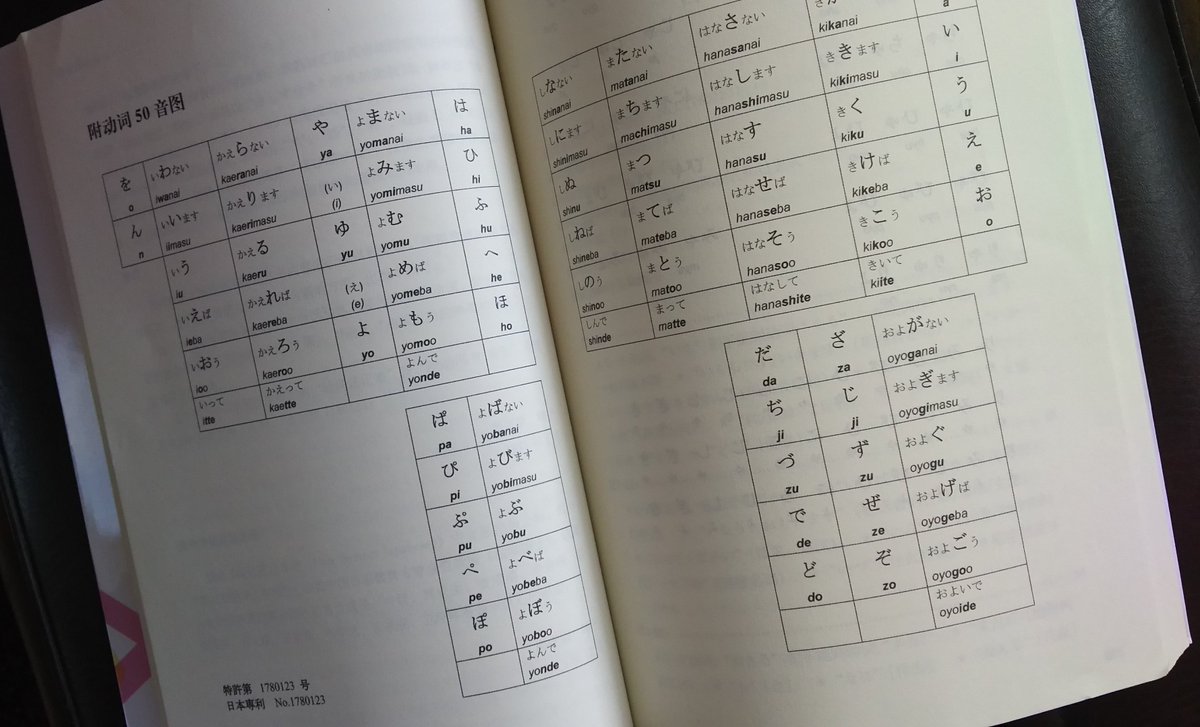 附动词50音图
を いわない かえらない や よまない は
o iwanai kaeranai ya yomanai ha
ん いいます かえります (い) よみます ひ
n iimasu kaerimasu (i) yomimasu hi
いう かえる ゆ よむ ふ
iu kaeru yu yomu hu
いえば かえれば (え) よめば へ
ieba kaereba (e) yomeba he
いおう かえろう よ よもう ほ
ioo kaeroo yo yomoo ho
いって かえって よんで
itte kaette yonde
ぱ よばない
pa yobanai
ぴ よびます
pi yobimasu
ぷ よぶ
pu yobu
ぺ よべば
pe yobeba
ぽ よぼう
po yoboo
よんで
yonde
特許第 1780123 号
日本專利 No.1780123
しなない またない はなさない
shinanai matanai hanasanai kikanai a
しにます まちます はなします ききます い
shinimasu machimasu hanashimasu kikimasu i
しぬ まつ はなす きく う
shinu matsu hanasu kiku u
しねば まてば はなせば きけば え
shineba mateba hanaseba kikeba e
しのう まとう はなそう きこう お
shinoo matoo hanasoo kikoo o
しんで まって はなして きいて
shinde matte hanashite kiite
だ ざ およがない
da za oyoganai
ぢ じ およぎます
ji ji oyogimasu
づ ず およぐ
zu zu oyogu
で ぜ およげば
de ze oyogeba
ど ぞ およごう
do zo oyogoo
およいで
oyoide